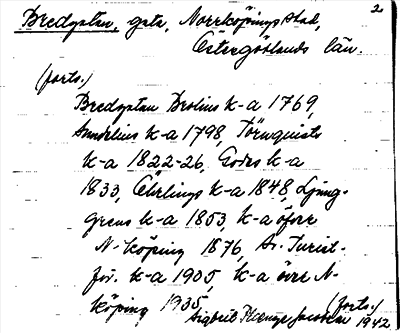 2.
Bredgatan, gata, Norrköpings stad,
Östergötlands län.
(forts.)
Bredgatan Brolius k-a 1769,
Sundelius k-a 1798, Törnquists
k-a 1822-26, Godes k-a
1833, Öhrlings k-a 1848, Ljung-
grens k-a 1853, k-a öfver
N-köping 1876, Sv. Turist-
för. k-a 1905, k-a över N-
köping 1935,
(forts.)
Sigbrit Plænge Jacobson 1942